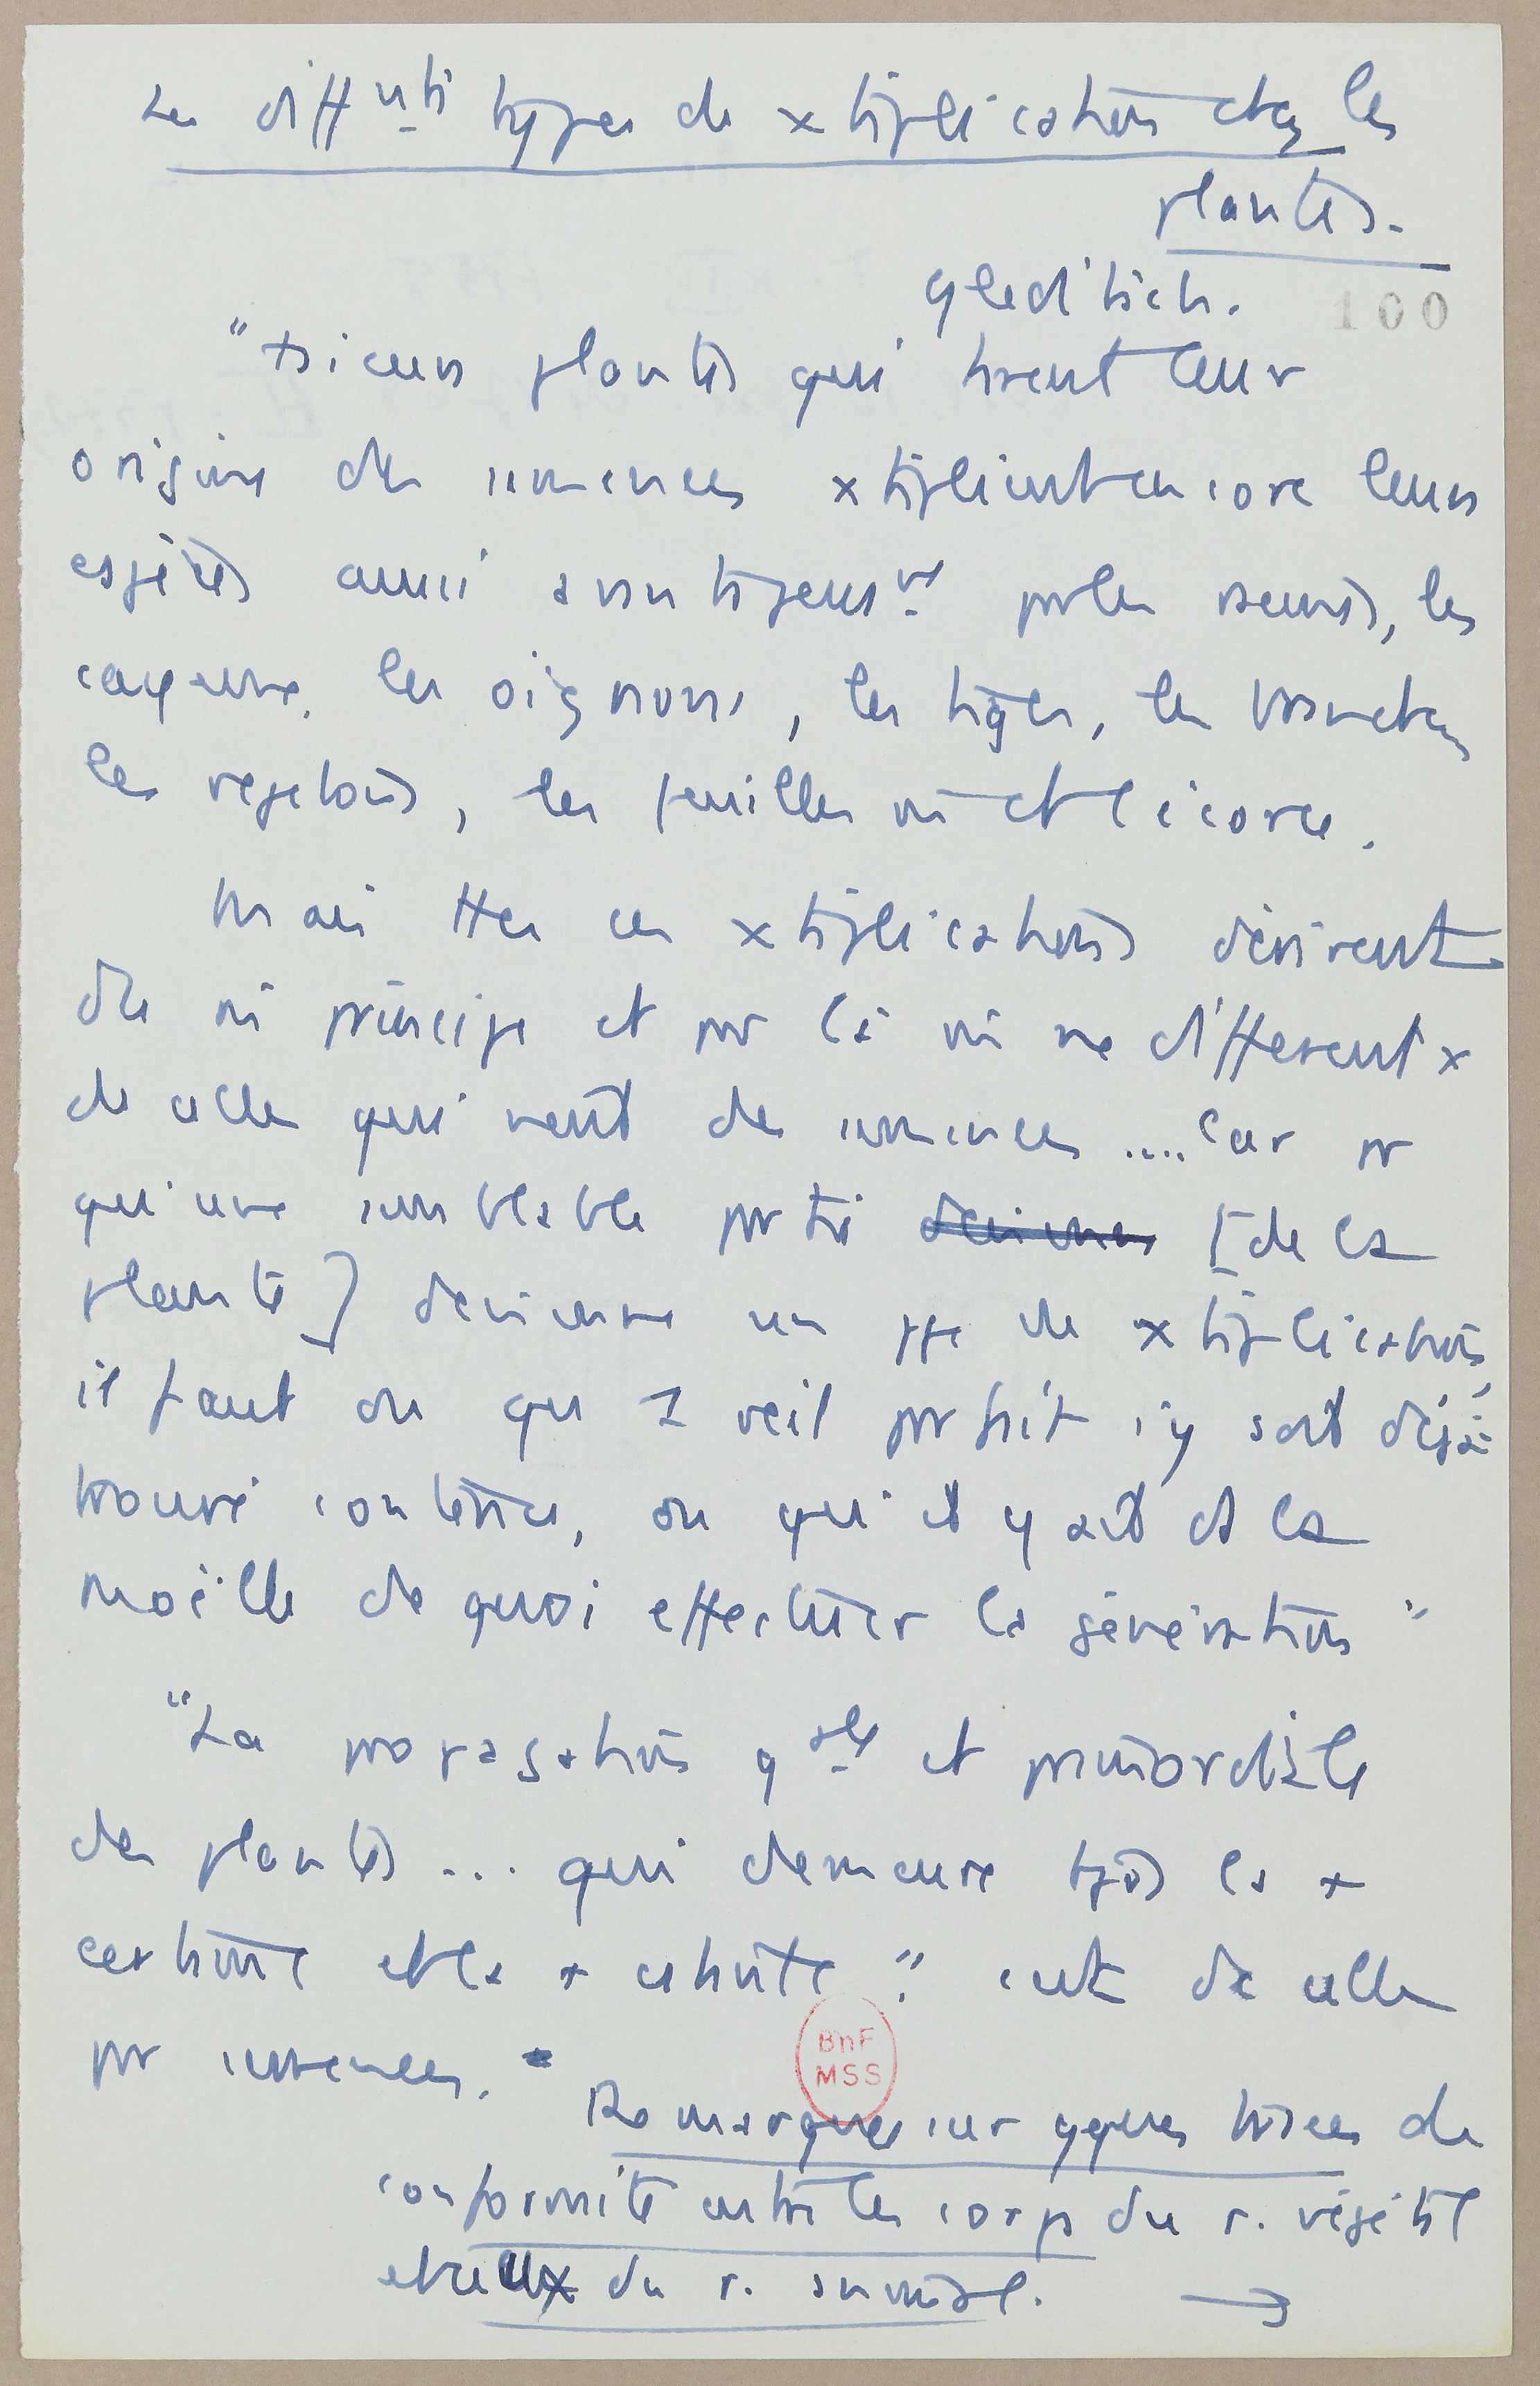 Les difféts types de xtiplication chez les
plantes.
Gleditsch.
100
"+sieurs plantes qui tirent leur
origine des semences xtiplient encore leurs
espèces aussi avantageust par les racines, les
cayeux, les oignons, les tiges, les branches
les rejetons, les feuilles m et l'écorce.
Mais ttes ces xtiplications dérivent
du m principe et par là m ne diffèrent x
de celles qui vient des semences .... Car pr
qu'une semblable partie devienne [de la
plante] devienne un ppe de xtiplication,
il faut ou que 1 œil parfait s'y soit déjà
trouvé contenu, ou qu'il y ait ds la
moëlle de quoi effectuer la génération"
"La propagation gale et primordiale
des plantes ... qui demeure tjrs la +
certaine et la + constante": c'est de celle
par semences.
Remarques sur qques traces de
conformité entre les corps du r. végétal
et ceux du r. animal. →
BnF
MSS